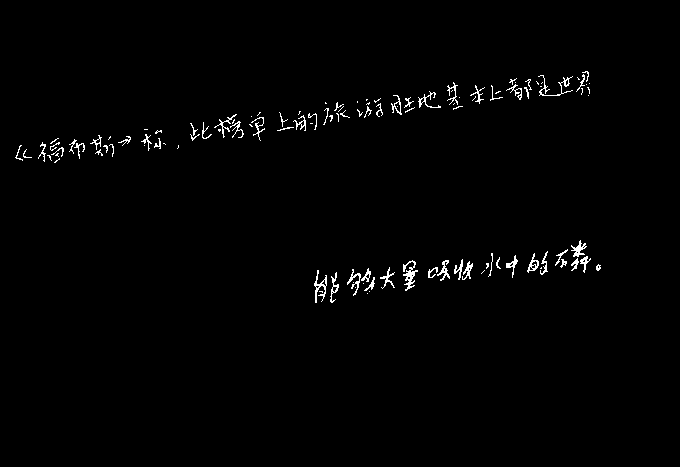 《福布斯》称,比榜单上的旅游胜地基本上都是世界
能够大量吸收水中的磷。